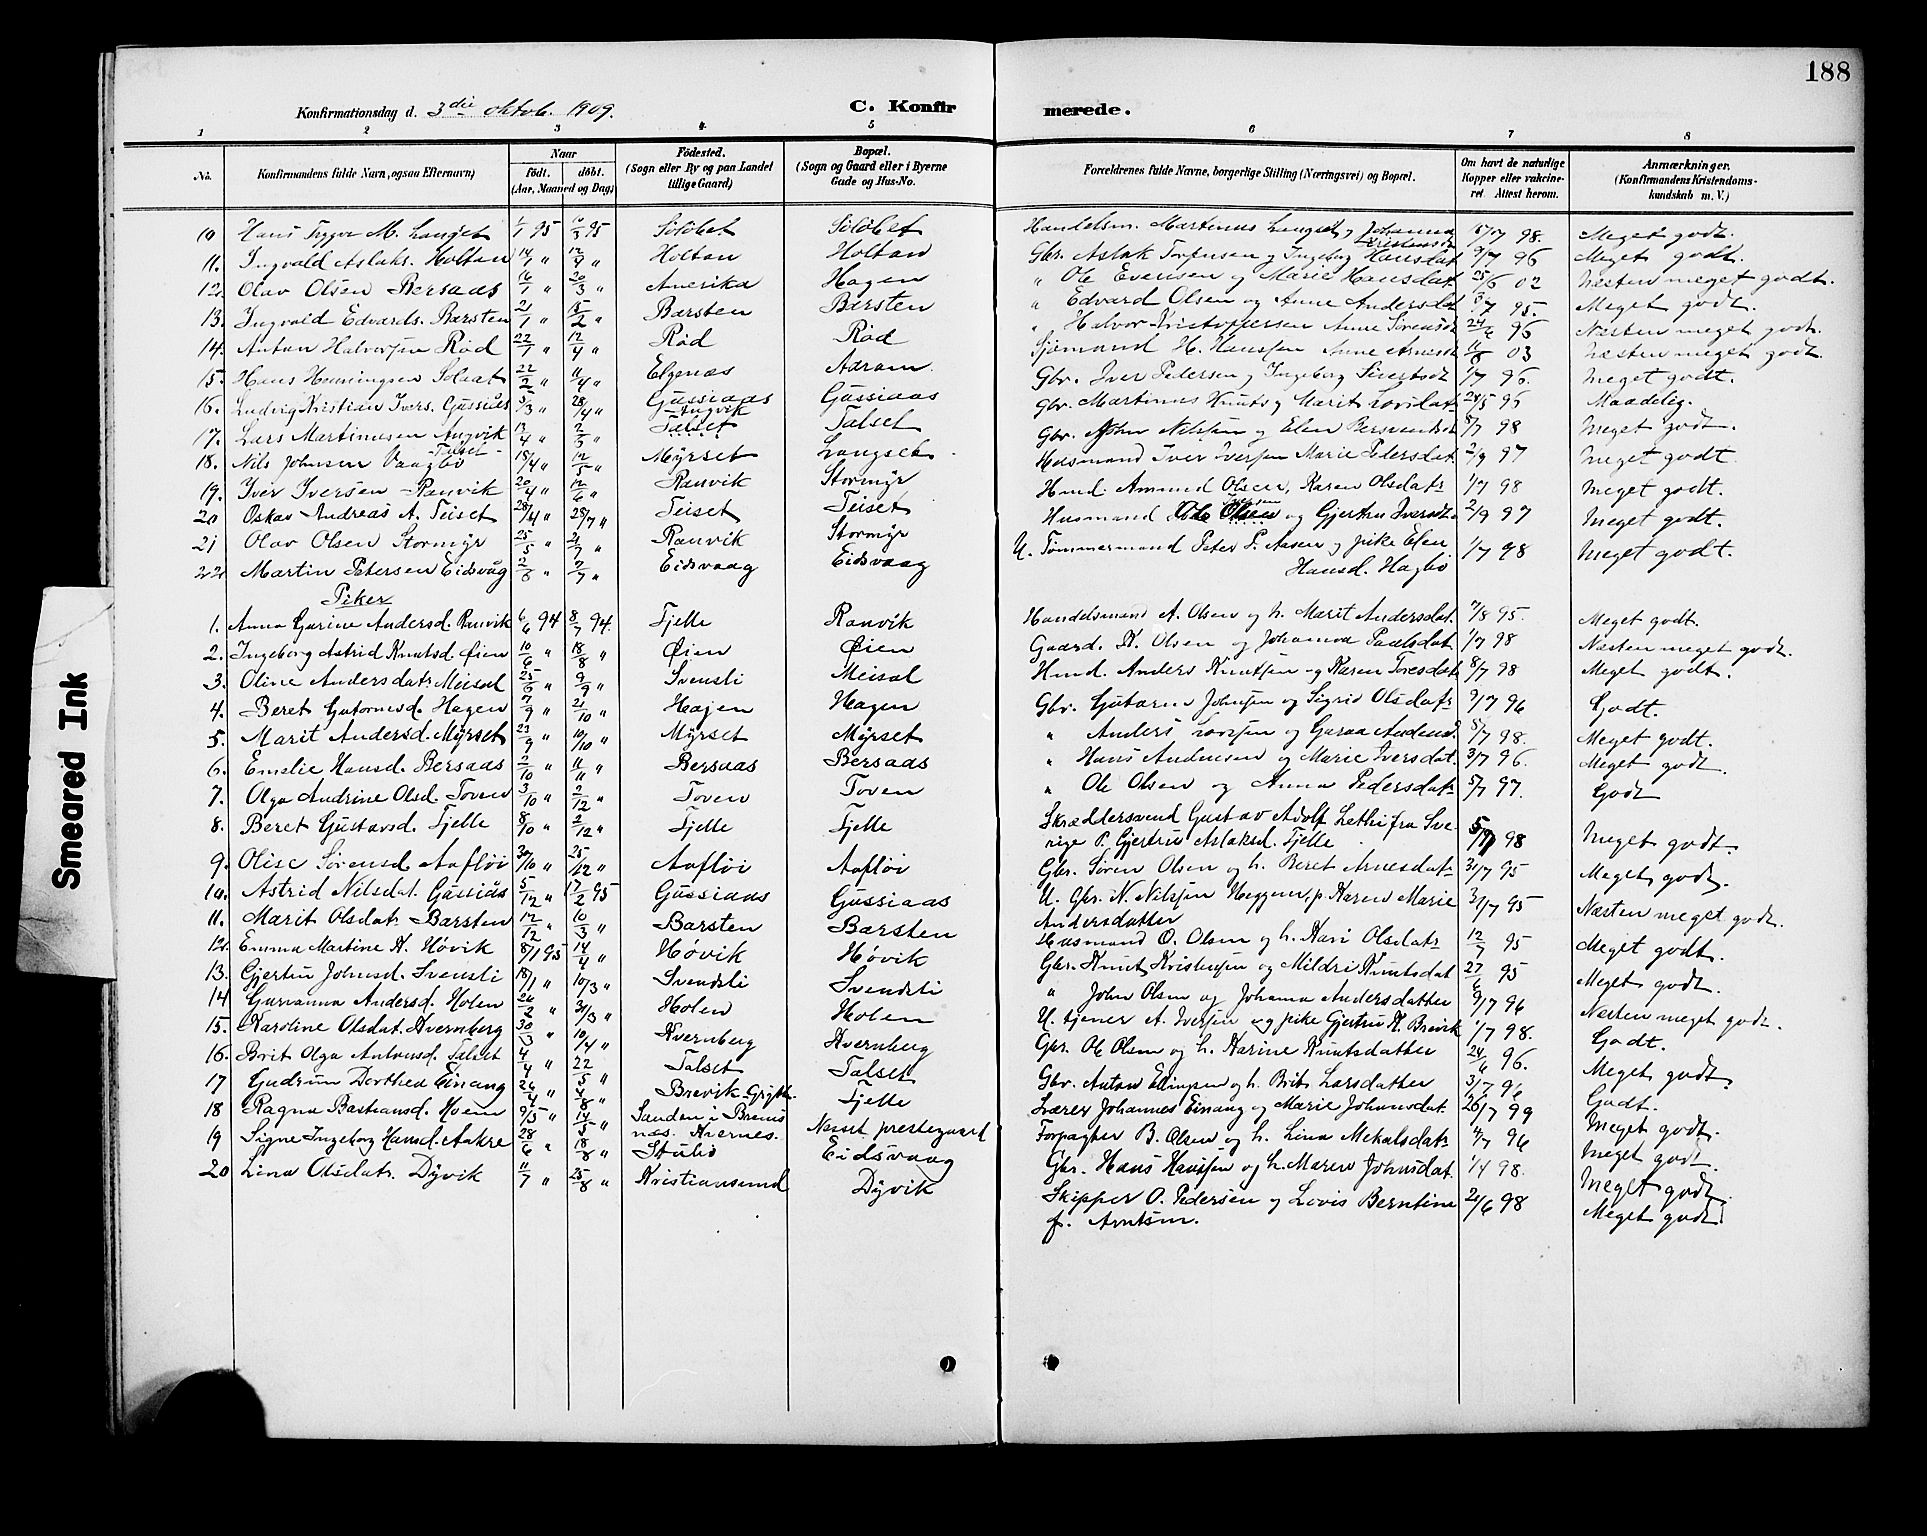 188
Konfirmationsdag d. 3die oktob. 1909. C. Konfirmerede.
1 2 3 4 5 6 7 8
No. Konfirmandens fulde Navn, ogsaa Efternavn) Naar født. døbt. (Aar, Maaned og Dag) Fødested. (Sogn eller By og paa Landet tillige Gaard) Bopæl. (Sogn og Gaard eller i Byerne Gade og Hus-No. Forældrenes fulde Navne, borgerlige Stilling (Næringsvei) og Bopæl. Om havt de naturlige Kopper eller vakcineret. Attest herom. Anmærkninger. (Konfirmandens Kristendomskundskab m. V.)
10 Hans Trygve M. Langset 1/1 95 10/3 95 Sölöbet Sölöbet Handelsm. Martinus Langset, Johanna Kristensd. 98. Meget godt.
11. Ingvald Aslaks. Holtan 14/1 " 12/4 " Holtan Holtan Gbr. Aslak Torfinsen og Ingeborg Hansdat 9/7 96 Meget godt.
12. Olav Olsen Bersaas 16/1 " 20/3 " Amerika Hagen " Ole Evensen og Marie Hansdat. 25/6 02 Næsten meget godt.
13. Ingvald Edvards. Barsten 21/1 " 15/2 " Barsten Barsten " Edvard Olsen og Anne Andersdat 3/7 95. Meget godt.
14. Anton Halvorsen Rød 22/1 " 12/4 " Rød Rød " Halvor Kristoffersen Anne Sörensd 96 Næsten meget godt.
15. Hans Henningsen 22/2 " 11/4 " Elgenæs Sjømand H. Hansen Anne Arnesd 11/8 03 Næsten meget godt.
16. Ludvig Kristian Ivers. Gussiås 5/3 " 28/4 " Gussiaas Gussiaas Gbr. Iver Petersen og Ingeborg Siverts 1/7 96. Meget godt.
17. Lars Martinusen Angvik 13/4 " 2/5 " Angvik Talset Talset Gbr. Martinus Knuts og Marit 24/5 96 Maadelig.
18. Nils Johnsen Vaagbø Talset 18/4 " 12/5 " Myrset Langset Gbr. John Nilssen og Elen 8/7 98 Meget godt.
19. Iver Iversen Ranvik 20/4 " 12/6 " Ranvik Stormyr Husmand Iver Iversen Marie Pedersdat. 2/9 97 Meget godt
20 Oskar Andreas A. Teiset 28/4 " 25/7 " Teiset Teiset Hmd. Amund Olsen, Karen Olsdatr 1/7 98 Meget godt.
21 Olav Olsen Stormyr 25/5 " 21/7 " Ranvik Stormyr Husmand Ole Olsen og Gjertru Iversdt. 2/9 97 Meget godt.
22 Martin Petersen Eidsvåg 2/8 " 7/7 " Eidsvaag Eidsvaag U. Tømmermand Peter P. Aasen og pike Elen 1/7 98 Meget godt.
Hansd. Hagbø
Piker
1. Anna Gurine Andersd. Ranvik 6/6 94 8/7 94. Tjelle Ranvik Handelsmand A. Olsen og h. Marit Andersdat. 7/8 95. Meget godt.
2. Ingeborg Astrid Knutsd. Øien 10/6 " 18/8 " Øien Øien Gaard. K. Olsen og Johanna Paalsdat 1/7 98 Næsten meget godt.
3. Oline Andersdatr Meisal 25/6 " 9/9 " Svensli Meisal Hmd. Anders Knutsen og Karen Toresdat 8/7 98 Meget godt.
4. Beret Gutormsd. Hagen 7/9 " 21/10 " Hagen Hagen Gbr. Gutorm Johnsen og Sigrid Olsdatr 9/7 96 Godt.
5. Marit Andersd. Myrset 23/9 " 10/10 " Myrset Myrset " Anders Larsen og Guroa Andersd. 8/7 98. Meget godt.
6. Emelie Hansd. Bersaas 2/10 " 11/11 " Bersaas Bersaas " Hans Andersen og Marie Iversdat. 3/7 96. Meget godt.
7. Olga Andrine Olsd. Toven 3/10 " 2/12 " Toven Toven " Ole Olsen og Anna Pedersdatr 5/7 97. Godt
8. Beret Gustavsd. Tjelle 8/10 " 2/12 " Tjelle Tjelle Skræddersvend Gustav Adolf Lethi fra Sve
rige P. Gjertru Aslaksd. Tjelle 98 Meget godt.
9. Olise Sörensd Aafløi 30/10 " 25/12 " Aafløi Aafløi Gbr. Sören Olsen og h. Beret Arnesdatr 31/7 95 Meget godt.
10. Astrid Nilsdat. Gussiås 5/12 " 17/2 95 Gussiaas Gussiaas U. Gbr. N. Nilssen Heggem, p. Karen Marie 3/7 95 Næsten meget godt.
Andersdatter
11. Marit Olsdatr Barsten 12/12 " 10/3 " Barsten Barsten Husmand O. Olsen og h. Kari Olsdatr 12/7 95 Meget godt.
12. Emma Martine K. Høvik 8/1 95 14/4 " Høvik Høvik Gbr. Knut Kristensen og Mildri Knutsdat 27/6 95 Meget godt.
13. Gjertru Johnsd. Svensli 18/1 " 10/3 " Svendsli Svendsli " John Olsen og Johanna Andersdatter 9/7 96 Næsten meget godt.
14 Guruanna Andersd. Holen 24/2 " 31/3 " Holen Holen U. tjener A. Iversen og pike Gjertru K. Brevik 1/7 98. Godt.
15. Karoline Olsdat. Kvernberg 30/3 " 10/4 " Kvernberg Kvernberg Gbr. Ole Olsen og h. Karine Knutsdatter 24/6 96. Meget godt.
16. Brit Olga Antonsd. Talset 4/4 " 22/5 " Talset Talset Gbr. Anton Edingsen og h. Brit Larsdatter 3/7 96 Godt.
17 Gudrun Dorthea Einang 26/4 " 4/8 " Brevik Grytt. Tjelle Lærer Johannes Einang og Marie Johansdat. 26/7 99 Meget godt.
18 Ragna Bastiansd. Hoem 9/5 " 14/5 " Sanden i Brems
næs. Kvernes. Nesset prestegaard Forpagter B. Olsen og h. Lina Mekalsdatr 4/7 96 Meget godt.
19 Signe Ingeborg Hansd. Aakre 28/6 " 18/8 " Stubø Eidsvaag Gbr. Hans Hanssen og h. Maren Johnsdat. 1/4 98. Meget godt.
20 Lina Olsdatr. Dyvik 11/7 " 25/8 " Kristiansund Dyvik Skipper O. Pedersen og Lovis Berntine 21/6 98 Meget godt
f. Arntsen.
Smeared Ink